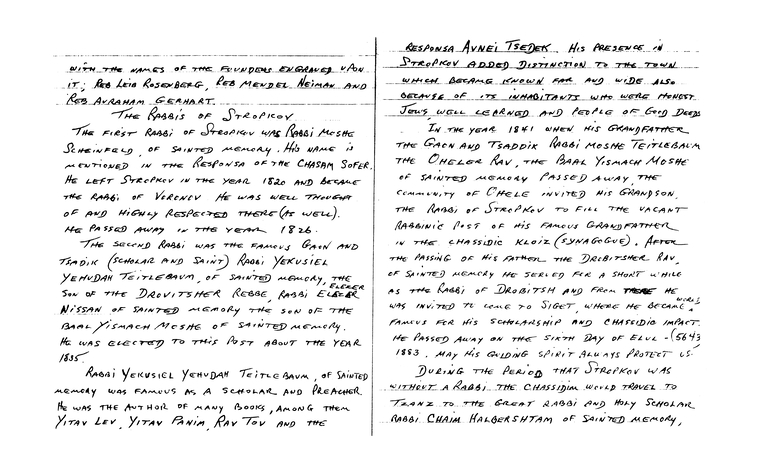 WITH THE NAMES OF THE FOUNDERS ENGRAVED UPON
IT; REB LEIB ROSENBERG, REB MENDEL NEIMAN AND
REB AVRAHAM GERHART.
THE RABBIS OF STROPKOV
THE FIRST RABBI OF STROPKOV WAS RABBI MOSHE
SCHEINFELD, OF SAINTED MEMORY. HIS NAME IS
MENTIONED IN THE RESPONSA OF THE CHASAM SOFER.
HE LEFT STROPKOV IN THE YEAR 1820 AND BECAME
THE RABBI OF VORONOV HE WAS WELL THOUGHT
OF AND HIGHLY RESPECTED THERE (AS WELL).
HE PASSED AWAY IN THE YEAR 1826.
THE SECOND RABBI WAS THE FAMOUS GAON AND
TSADIK (SCHOLAR AND SAINT) RABBI YEKUSIEL
YEHUDAH TEITLEBAUM, OF SAINTED MEMORY, THE
SON OF THE DROVITSHER REBBE, RABBI ELIEZER
NISSAN OF SAINTED MEMORY THE SON OF THE
BAAL YISMACH MOSHE OF SAINTED MEMORY.
HE WAS ELECTED TO THIS POST ABOUT THE YEAR
1835.
RABBI YEKUSIEL YEHUDAH TEITLEBAUM, OF SAINTED
MEMORY WAS FAMOUS AS A SCHOLAR AND PREACHER.
HE WAS THE AUTHOR OF MANY BOOKS, AMONG THEM
YITAV LEV, YITAV PANIM, RAV TOV AND THE
RESPONSA AVNEI TSEDEK. HIS PRESENCE IN
STROPKOV ADDED DISTINCTION TO THE TOWN
WHICH BECAME KNOWN FAR AND WIDE ALSO
BECAUSE OF ITS INHABITANTS WHO WERE HONEST
JEWS WELL LEARNED AND PEOPLE OF GOOD DEEDS
IN THE YEAR 1841 WHEN HIS GRANDFATHER
THE GAON AND TSADDIK RABBI MOSHE TEITLEBAUM
THE OHELER RAV, THE BAAL YISMACH MOSHE
OF SAINTED MEMORY PASSED AWAY THE
COMMUNITY OF OHELE INVITED HIS GRANDSON,
THE RABBI OF STROPKOV TO FILL THE VACANT
RABBINIC POST OF HIS FAMOUS GRANDFATHER
IN THE CHASSIDIC KLOIZ (SYNAGOGUE). AFTER
THE PASSING OF HIS FATHER THE DROBITSHER RAV,
OF SAINTED MEMORY HE SERVED FOR A SHORT WHILE
AS THE RABBI OF DROBITSH AND FROM THERE HE
WAS INVITED TO COME TO SIGET, WHERE HE BECAME WORLD
FAMOUS FOR HIS SCHOLARSHIP AND CHASSIDIC IMPACT.
HE PASSED AWAY ON THE SIXTH DAY OF ELUL - (5643
1883. MAY HIS GUIDING SPIRIT ALWAYS PROTECT US.
DURING THE PERIOD THAT STROPKOV WAS
WITHOUT A RABBI THE CHASSIDIM WOULD TRAVEL TO
TZANZ TO THE GREAT RABBI AND HOLY SCHOLAR
RABBI CHAIM HALBERSHTAM OF SAINTED MEMORY,